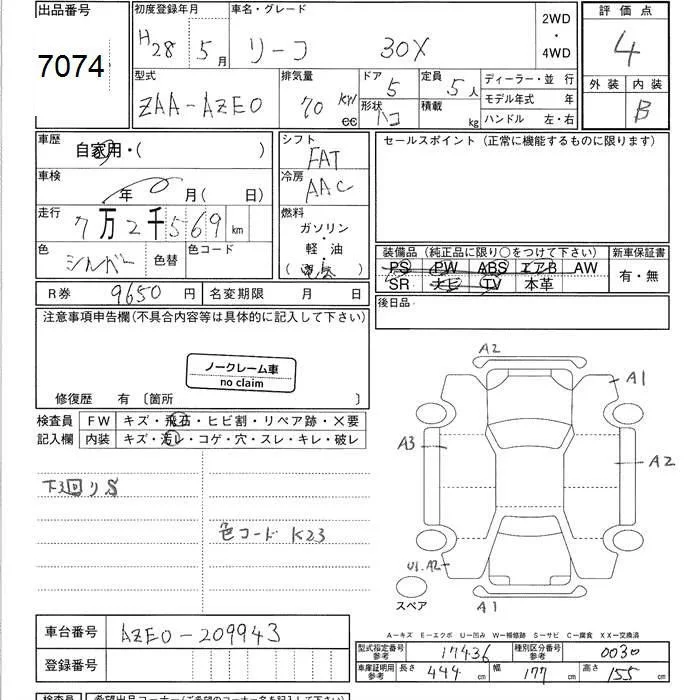 出品番号 初度登録年月 車名・グレード 2WD・4WD 評価点
7074 H28 5月 リーフ 30X 4
型式 排気量 ドア 定員 ディーラー・並 行 外装 内装
ZAA-AZE0 70 KW cc 5 5人 モデル年式 年 B
形状 ハコ 積載 kg ハンドル 左・右
車歴 自家用・( ) シフト FAT セールスポイント (正常に機能するものに限ります)
車検 年 月( 日) 冷房 AAC
走行 7万2千569km 燃料 ガソリン・軽 油・( )
色 シルバー 色替 色コード
装備品 (純正品に限り○をつけて下さい) 新車保証書
PS PW ABS エアB AW 有・無
SR ナビ TV 本革
R券 9650円 名変期限 月 日 後日品
注意事項申告欄(不具合内容等は具体的に記入して下さい)
ノークレーム車
no claim
修復歴 有 〔箇所 〕
検査員 FW キズ・飛石・ヒビ割・リペア跡・×要
記入欄 内装 キズ・汚レ・コゲ・穴・スレ・キレ・破レ
下廻りS
色コード K23
A2
A1
A3
A2
U1.A2
A1
スペア
A−キズ E−エクボ U−凹み W−補修跡 S−サビ C−腐食 XX−交換済
車台番号 AZE0-209943
登録番号
型式指定番号 参考 17436 種別区分番号 参考 0030
車庫証明用 参考 長さ 444cm 幅 177cm 高さ 155cm
検査員 希望出品コーナー(ご希望のコーナー名を記入して下さい)